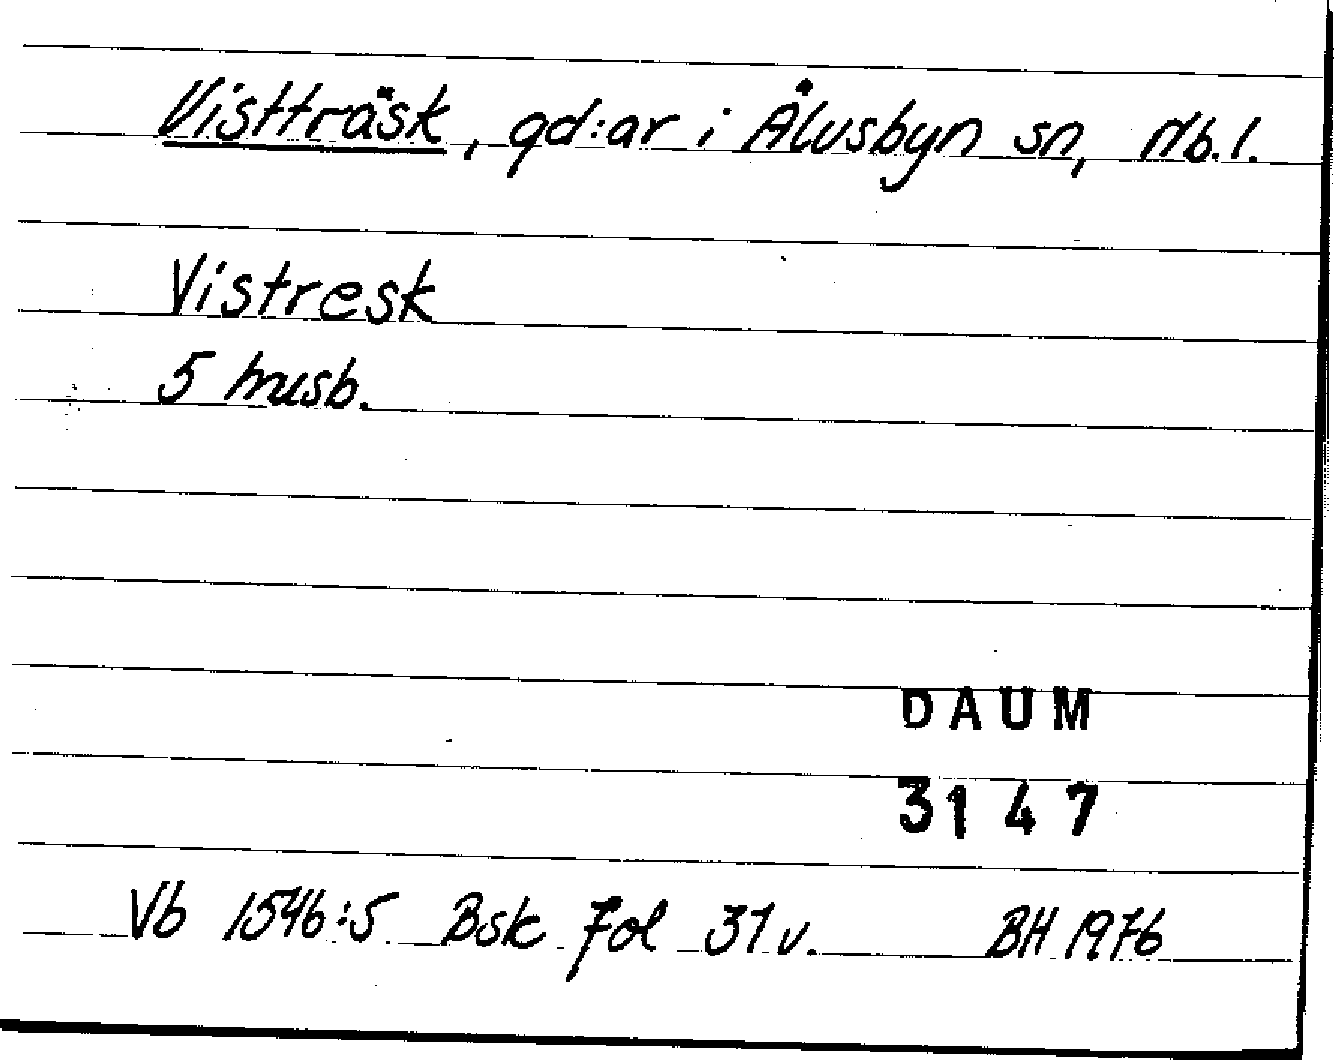 Vistträsk, gd:ar i Älvsbyn sn, Nb.l.
Vistresk
5 husb.
DAUM
3147
Vb 1546:5 Bsk Fol 31 v. BH 1976